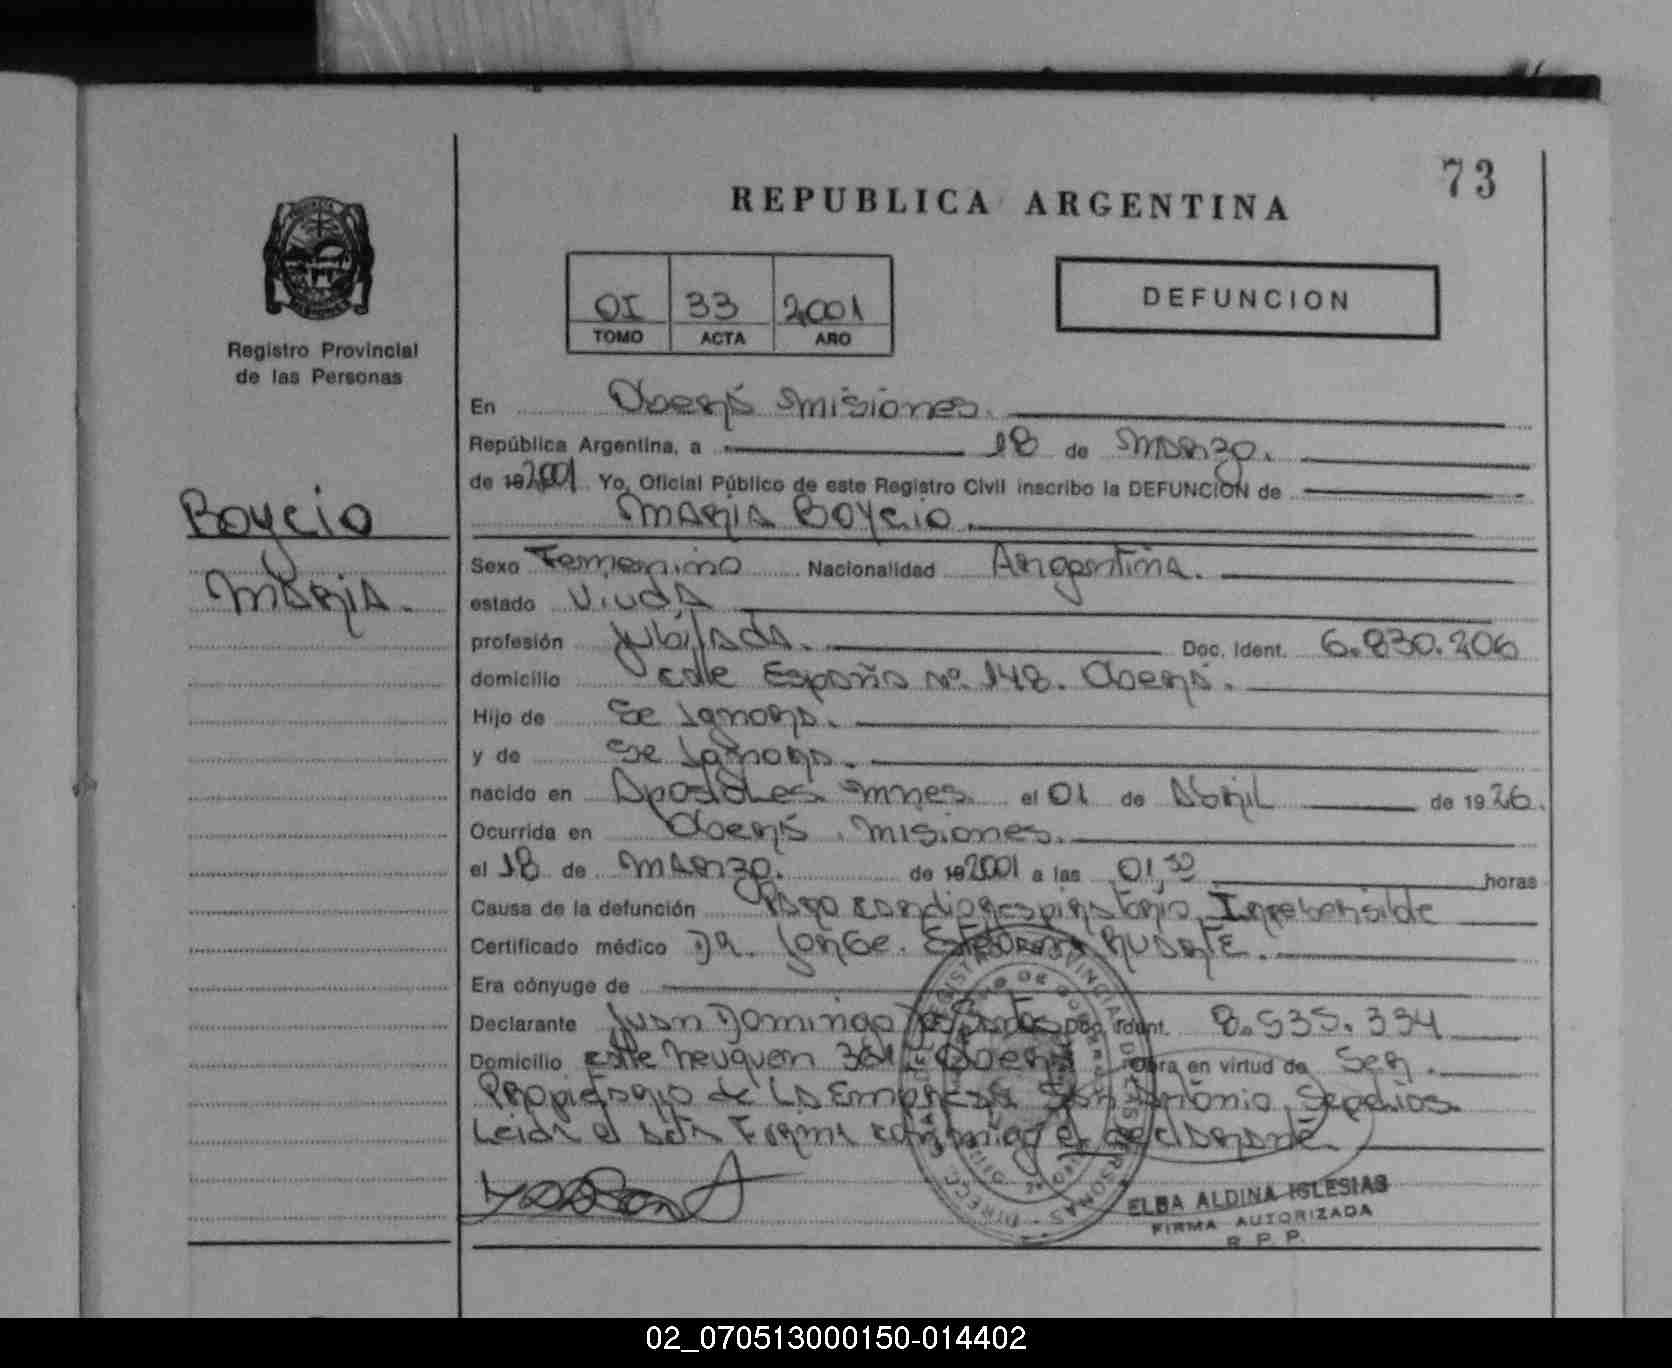 73
REPUBLICA ARGENTINA
OI 33 2001
TOMO ACTA AÑO
DEFUNCION
Registro Provincial
de las Personas
Boycio
Maria.
En Oberá Misiones.
República Argentina, a 18 de Marzo.
de 19 2001 Yo, Oficial Público de este Registro Civil inscribo la DEFUNCION de
Maria Boycio.
Sexo Femenino Nacionalidad Argentina.
estado Viuda
profesión Jubilada. Doc. Ident. 6.830.206
domicilio Calle España Nº 148. Oberá.
Hijo de Se Ignora.
y de Se Ignora.
nacido en Apostoles Mnes. el 01 de Abril de 1926.
Ocurrida en Oberá Misiones.
el 18 de Marzo. de 19 2001 a las 01,30 horas
Causa de la defunción Paro cardiorespiratorio,
Certificado médico DR. Jorge. Esteban
Era cónyuge de
Declarante Juan Domingo Dos Santos Doc. Ident. 8.535.334
Domicilio Calle Neuquen 361 Oberá Obra en virtud de Ser.
Propietario de La Empresa San Antonio, Sepelios.
Leida el acta Firma conmigo el declarante.
ELBA ALDINA IGLESIAS
FIRMA AUTORIZADA
R. P. P.
02_070513000150-014402